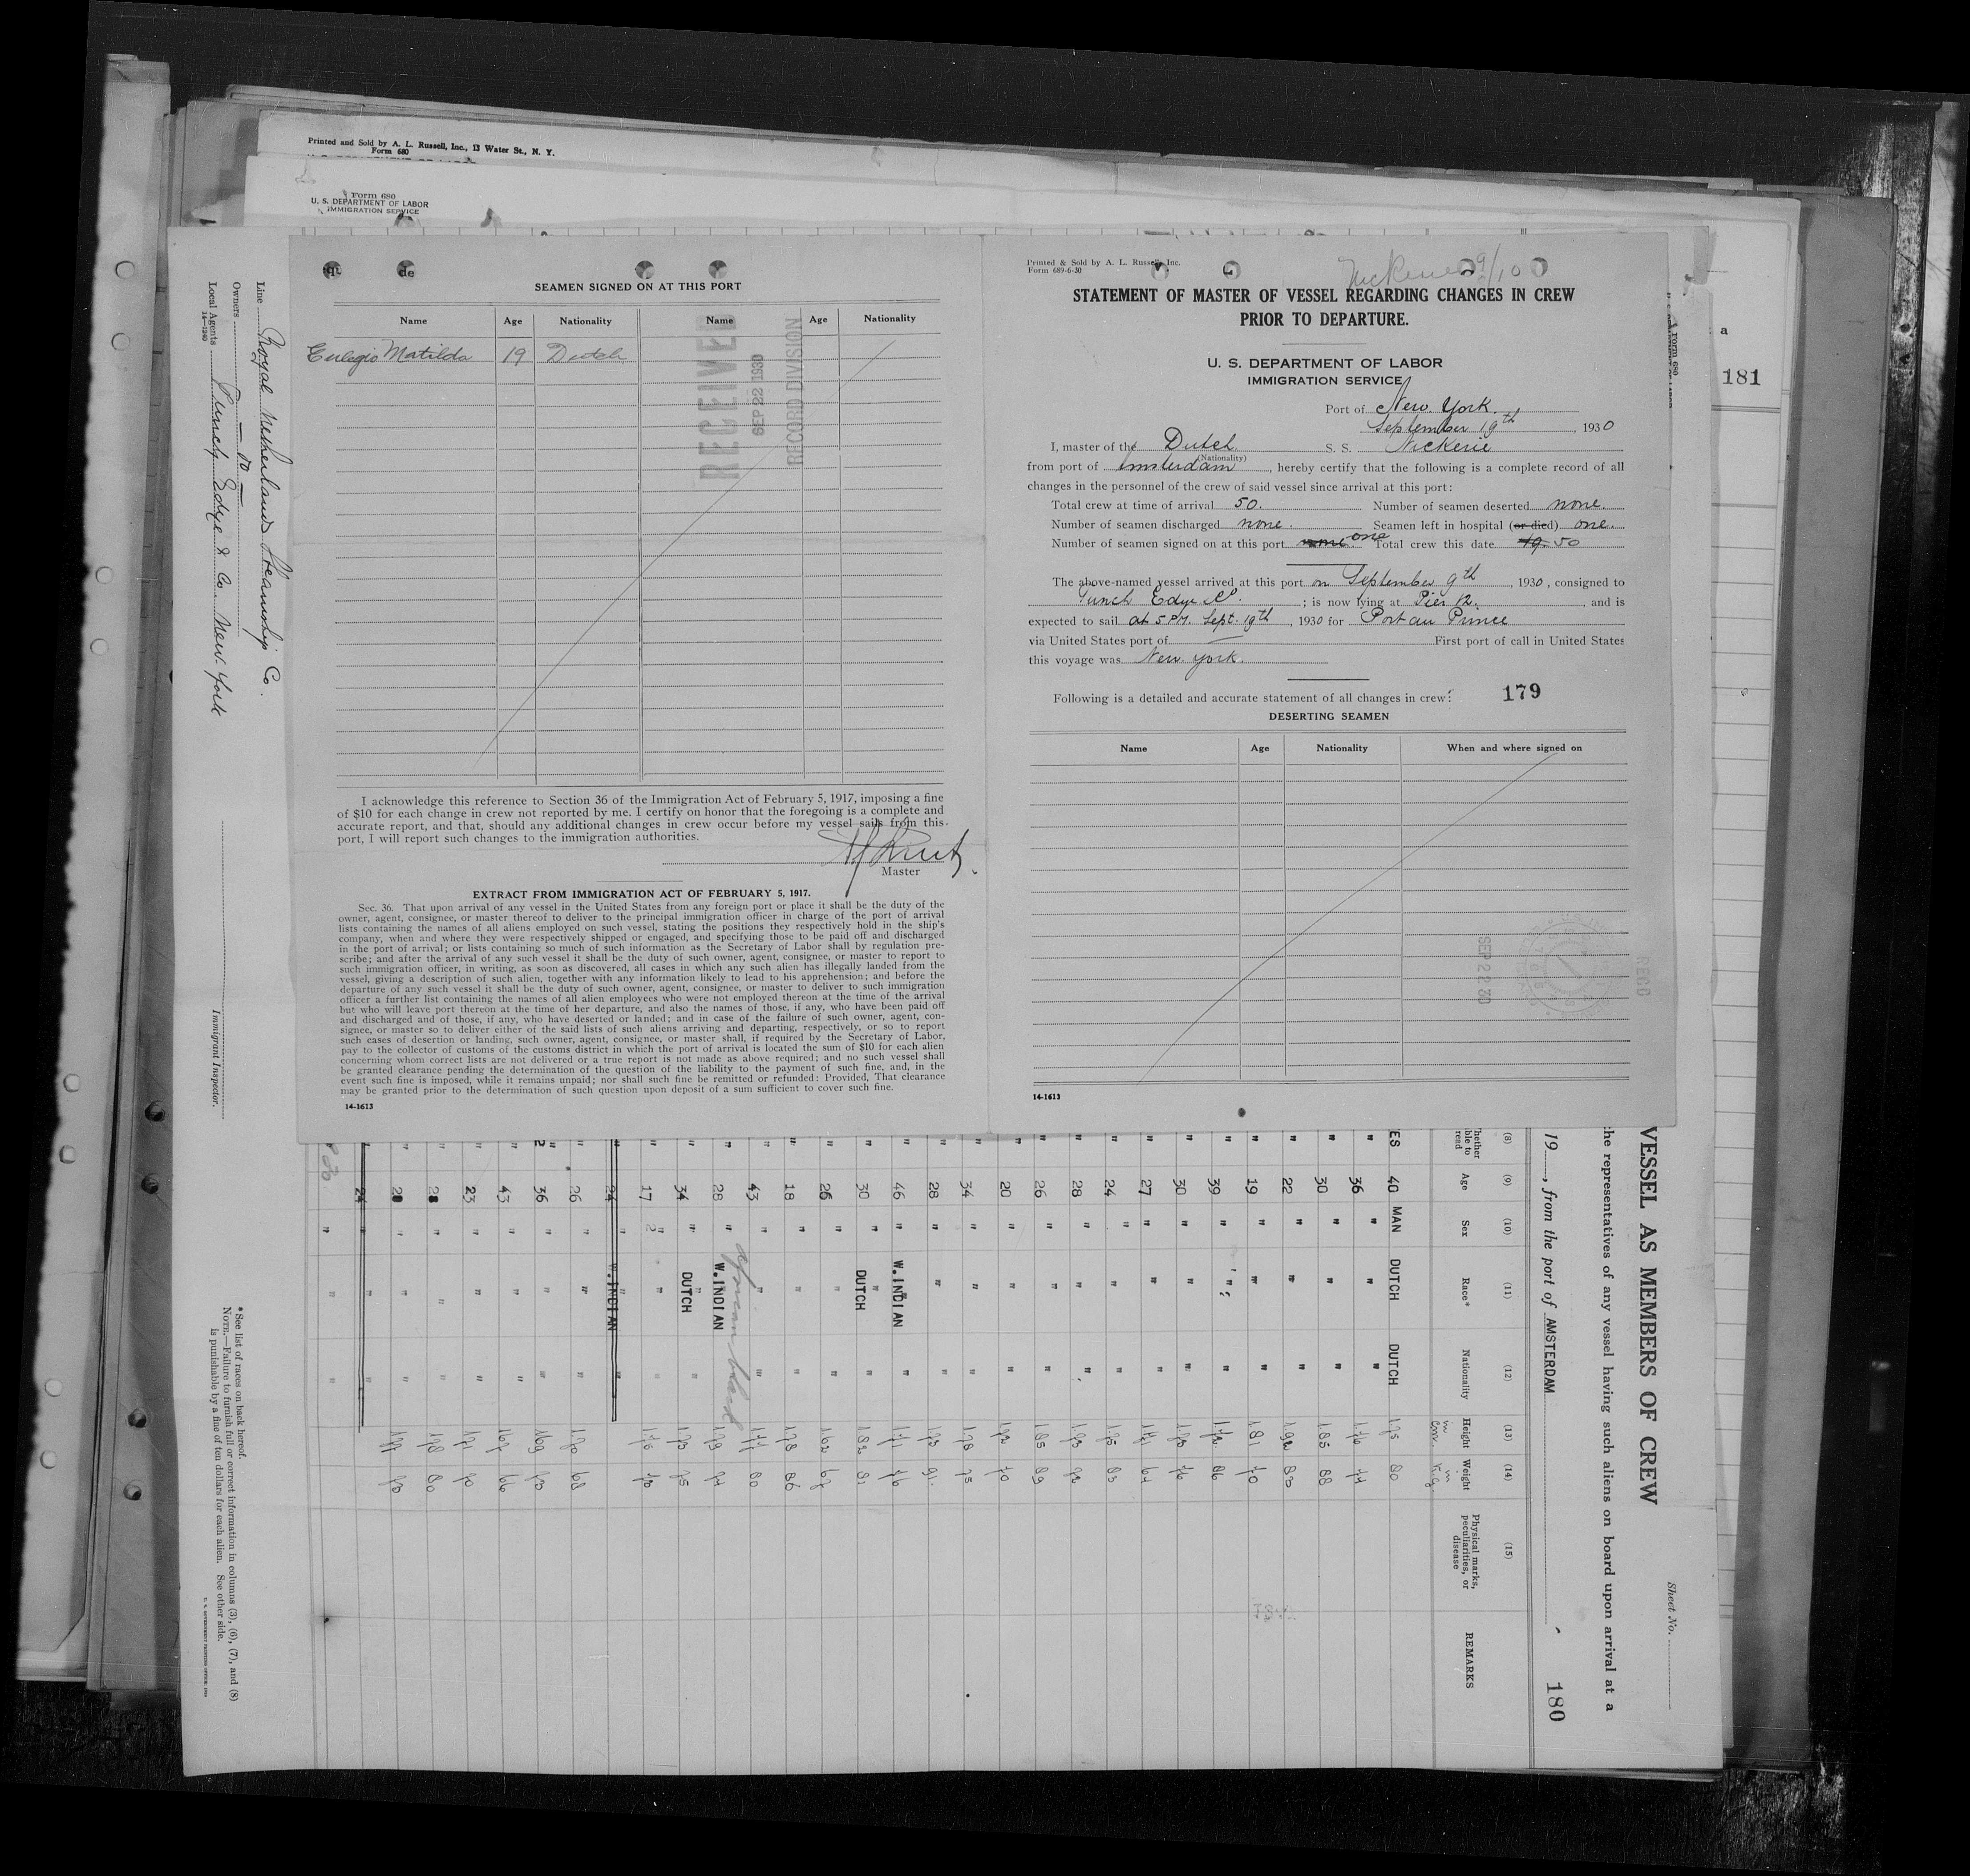 Printed and Sold by A. L. Russell, Inc., 13 Water St., N. Y.
Form 680
Form 680
U. S. DEPARTMENT OF LABOR
IMMIGRATION SERVICE
SEAMEN SIGNED ON AT THIS PORT
Name Age Nationality Name Age Nationality
Eulogio Matilda 19 Dutch
RECEIVED
SEP 22 1930
RECORD DIVISION
I acknowledge this reference to Section 36 of the Immigration Act of February 5, 1917, imposing a fine
of $10 for each change in crew not reported by me. I certify on honor that the foregoing is a complete and
accurate report, and that, should any additional changes in crew occur before my vessel sails from this
port, I will report such changes to the immigration authorities.
Master
EXTRACT FROM IMMIGRATION ACT OF FEBRUARY 5, 1917.
Sec. 36. That upon arrival of any vessel in the United States from any foreign port or place it shall be the duty of the
owner, agent, consignee, or master thereof to deliver to the principal immigration officer in charge of the port of arrival
lists containing the names of all aliens employed on such vessel, stating the positions they respectively hold in the ship's
company, when and where they were respectively shipped or engaged, and specifying those to be paid off and discharged
in the port of arrival; or lists containing so much of such information as the Secretary of Labor shall by regulation pre-
scribe; and after the arrival of any such vessel it shall be the duty of such owner, agent, consignee, or master to report to
such immigration officer, in writing, as soon as discovered, all cases in which any such alien has illegally landed from the
vessel, giving a description of such alien, together with any information likely to lead to his apprehension; and before the
departure of any such vessel it shall be the duty of such owner, agent, consignee, or master to deliver to such immigration
officer a further list containing the names of all alien employees who were not employed thereon at the time of the arrival
but who will leave port thereon at the time of her departure, and also the names of those, if any, who have been paid off
and discharged and of those, if any, who have deserted or landed; and in case of the failure of such owner, agent, con-
signee, or master so to deliver either of the said lists of such aliens arriving and departing, respectively, or so to report
such cases of desertion or landing, such owner, agent, consignee, or master shall, if required by the Secretary of Labor,
pay to the collector of customs of the customs district in which the port of arrival is located the sum of $10 for each alien
concerning whom correct lists are not delivered or a true report is not made as above required; and no such vessel shall
be granted clearance pending the determination of the question of the liability to the payment of such fine, and, in the
event such fine is imposed, while it remains unpaid; nor shall such fine be remitted or refunded: Provided, That clearance
may be granted prior to the determination of such question upon deposit of a sum sufficient to cover such fine.
14-1613
Printed & Sold by A. L. Russell, Inc.
Form 689-6-30
9/10
STATEMENT OF MASTER OF VESSEL REGARDING CHANGES IN CREW
PRIOR TO DEPARTURE.
U. S. DEPARTMENT OF LABOR
IMMIGRATION SERVICE
Port of New York.
September 19th, 1930
I, master of the Dutch S. S. Nickerie
(Nationality)
from port of Amsterdam, hereby certify that the following is a complete record of all
changes in the personnel of the crew of said vessel since arrival at this port:
Total crew at time of arrival 50. Number of seamen deserted none.
Number of seamen discharged none. Seamen left in hospital (or died) one.
Number of seamen signed on at this port none. one Total crew this date 49. 50
The above-named vessel arrived at this port on September 9th, 1930, consigned to
Funch Edye & Co.; is now lying at Pier 12., and is
expected to sail at 5 PM. Sept. 19th, 1930 for Port au Prince
via United States port of First port of call in United States
this voyage was New York.
Following is a detailed and accurate statement of all changes in crew:
179
DESERTING SEAMEN
Name Age Nationality When and where signed on
SEP 22 30
RECD
14-1613
a
181
Form 680
Line Royal Netherlands Steamship Co.
Owners — do —
Local Agents Funch, Edye & Co. New York
14-1240
Immigrant Inspector.
*See list of races on back hereof.
NOTE.—Failure to furnish full or correct information in columns (3), (6), (7), and (8)
is punishable by a fine of ten dollars for each alien. See other side.
Sheet No.
VESSEL AS MEMBERS OF CREW
the representatives of any vessel having such aliens on board upon arrival at a
19, from the port of AMSTERDAM
180
(8) (9) (10) (11) (12) (13) (14) (15)
Whether able to read Age Sex Race* Nationality Height Weight Physical marks, peculiarities, or disease REMARKS
in cm. in K.g.
ES 40 MAN DUTCH DUTCH 175 80
" 36 " " " 176 74
" 30 " " " 185 88
" 22 " " " 192 83
" 19 " " " 181 70
" 39 " " " 172 86
" 30 " " " 76
" 27 " " " 171 64
" 24 " " " 175 83
" 28 " " "
" 26 " " " 185 89
" 20 " " " 70
" 34 " " " 178 75
" 28 " " "
" 46 " W.INDIAN " 171 76
" 30 " DUTCH " 182 82
" 26 " " " 162 67
" 18 " " " 178 86
" 43 " " " 177 80
African black
" 28 " W.INDIAN
" 34 " DUTCH " 175
" 17 " " " 176 70
24 " W.INDIAN "
" 26 " " " 170 68
" 36 " " " 169
" 43 " " " 167 66
" 23 " " " 171 70
" 28 " " " 178 80
" 28 " " " 177
24 " " "